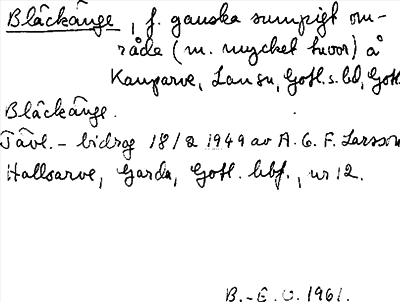 Bläckänge, f. ganska sumpigt om-
råde (m. mycket hvor) å
Kauparve, Lau sn, Gotl. s. hd, Gotl.
Bläckänge.
Tävl. - bidrag 18/2 1949 av A. G. F. Larsson
Hallsarve, Garda, Gotl. hbf., nr 12.
B.-E. O. 1961.